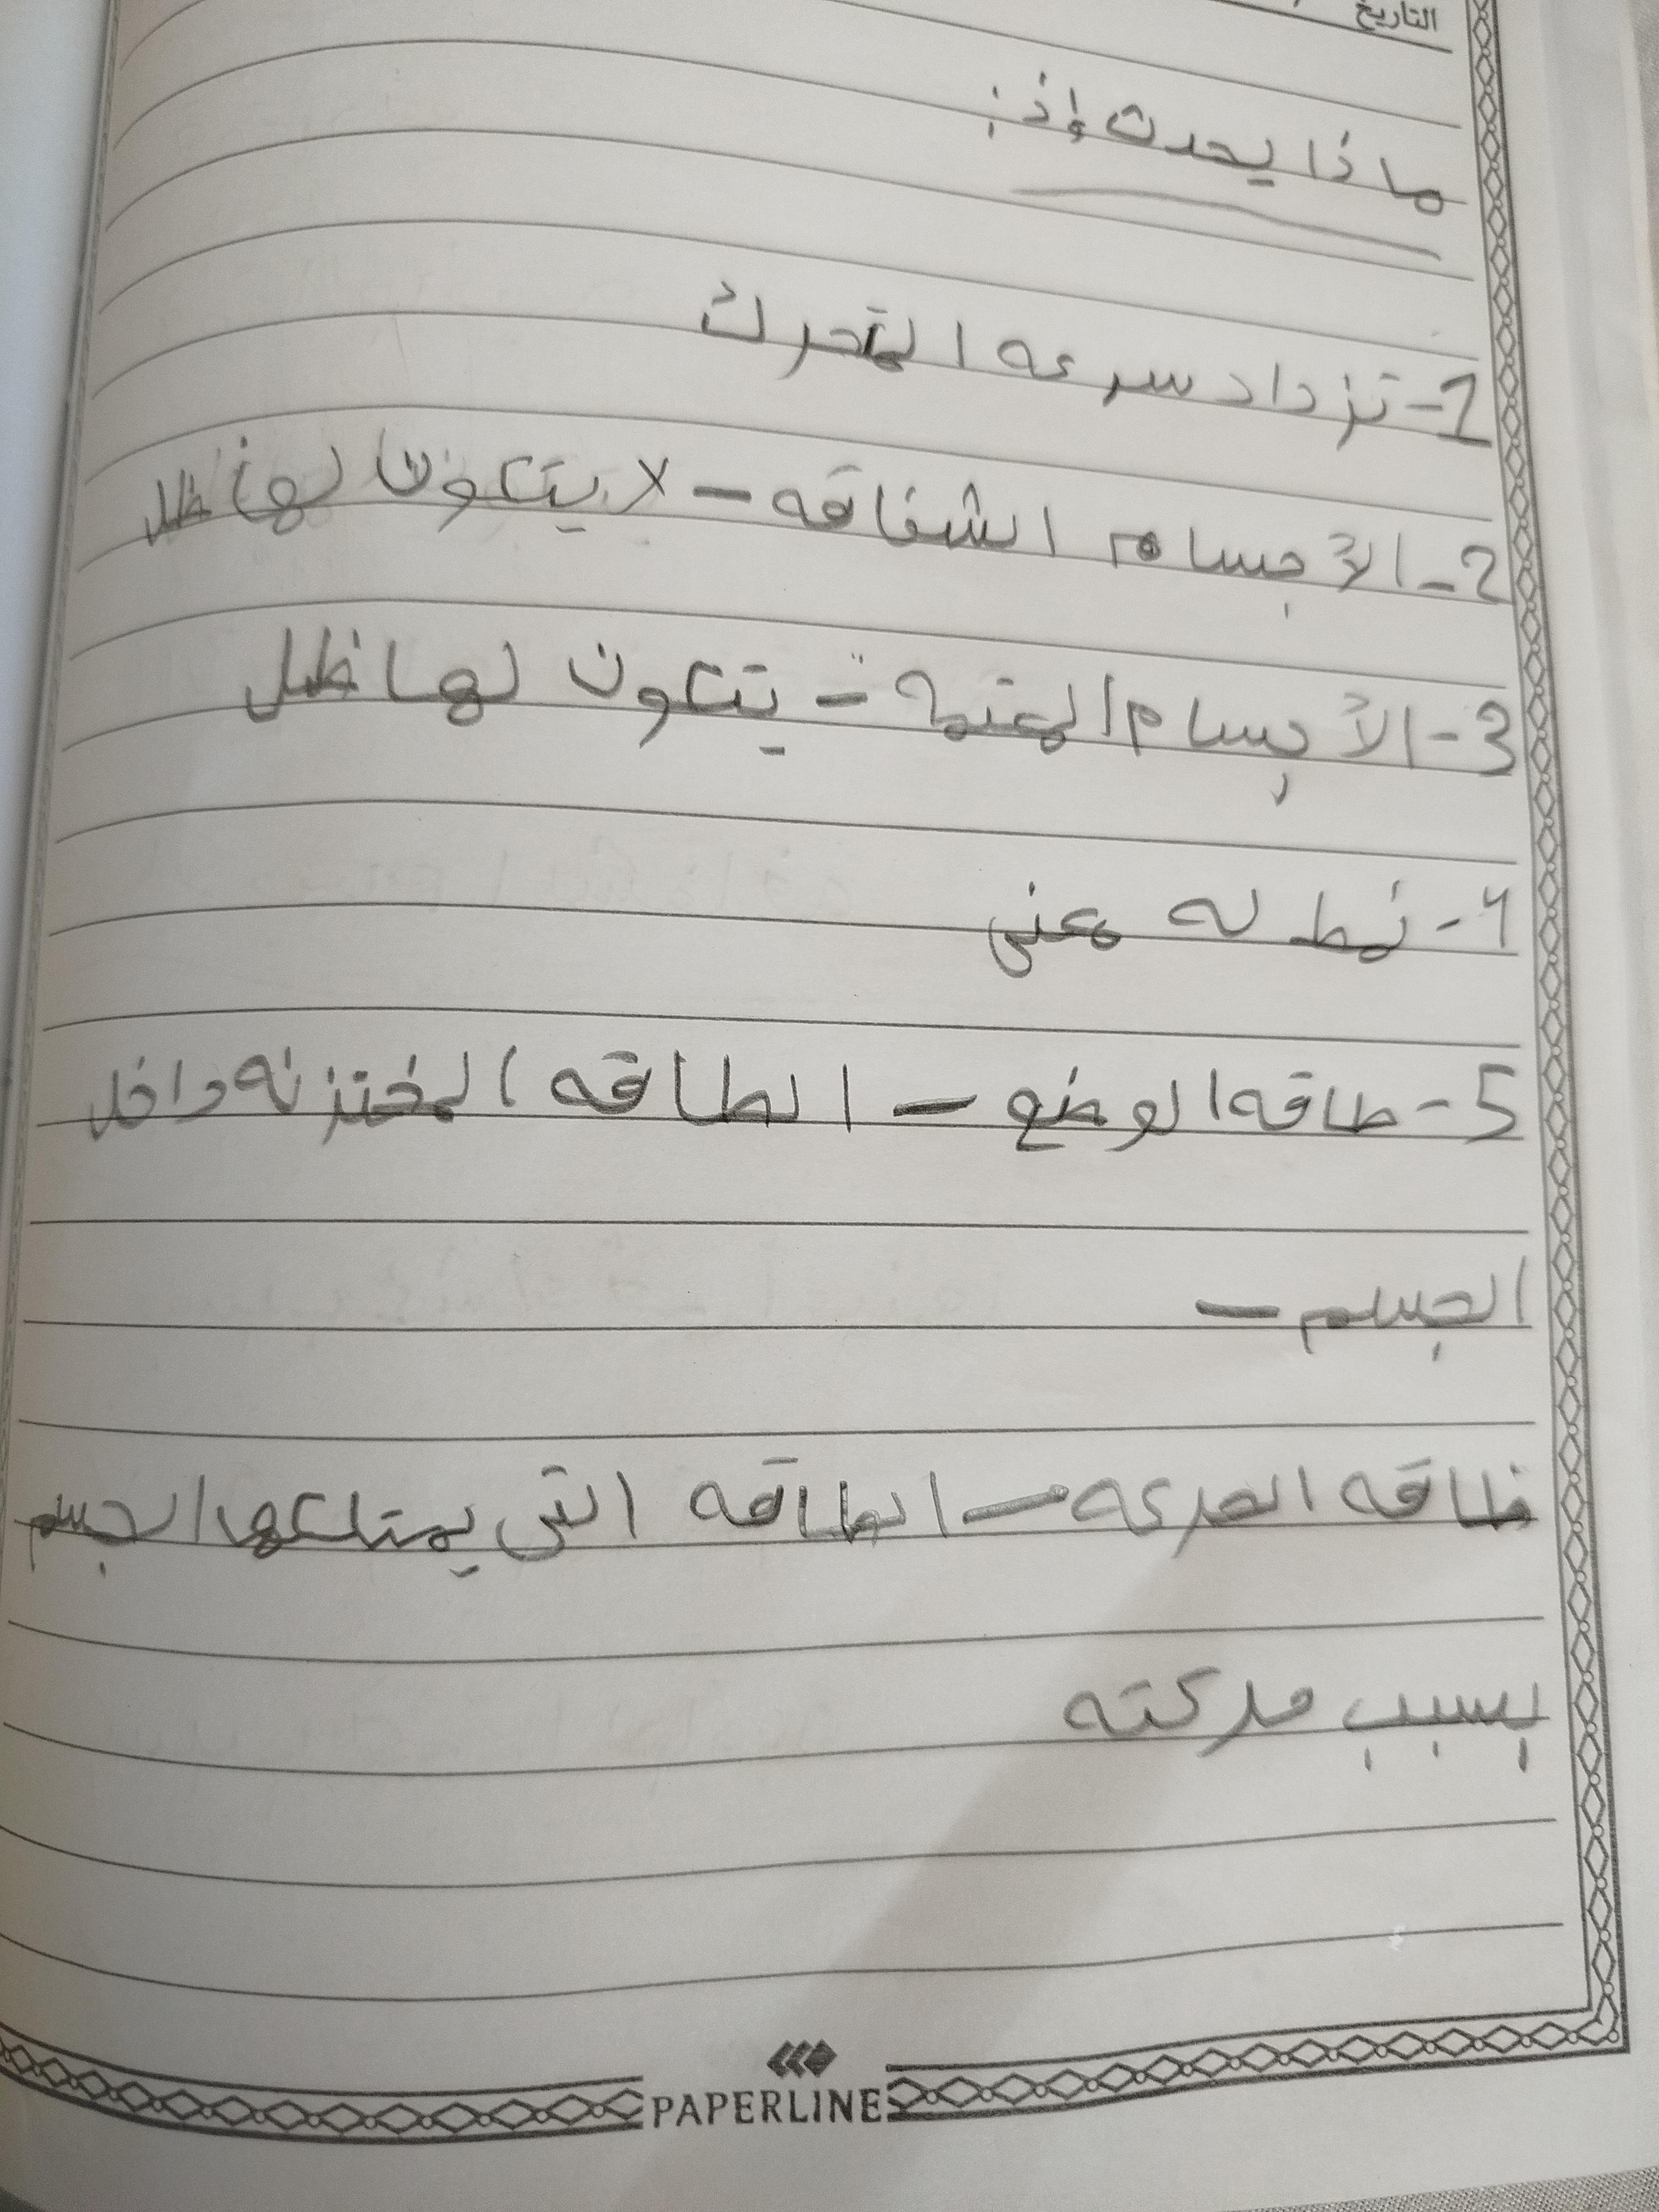 التاريخ
ماذا يحدث إذ:
1- تزداد سرعه المتحرك
2- الأجسام الشفافه - لا يتكون لها ظل
3- الأجسام المعتمه - يتكون لها ظل
4- نمط له معنى
5- طاقه الوضع - الطاقه المختزنه داخل
الجسم -
طاقه الحركه - الطاقه التى يمتلكها الجسم
بسبب حركته
PAPERLINE